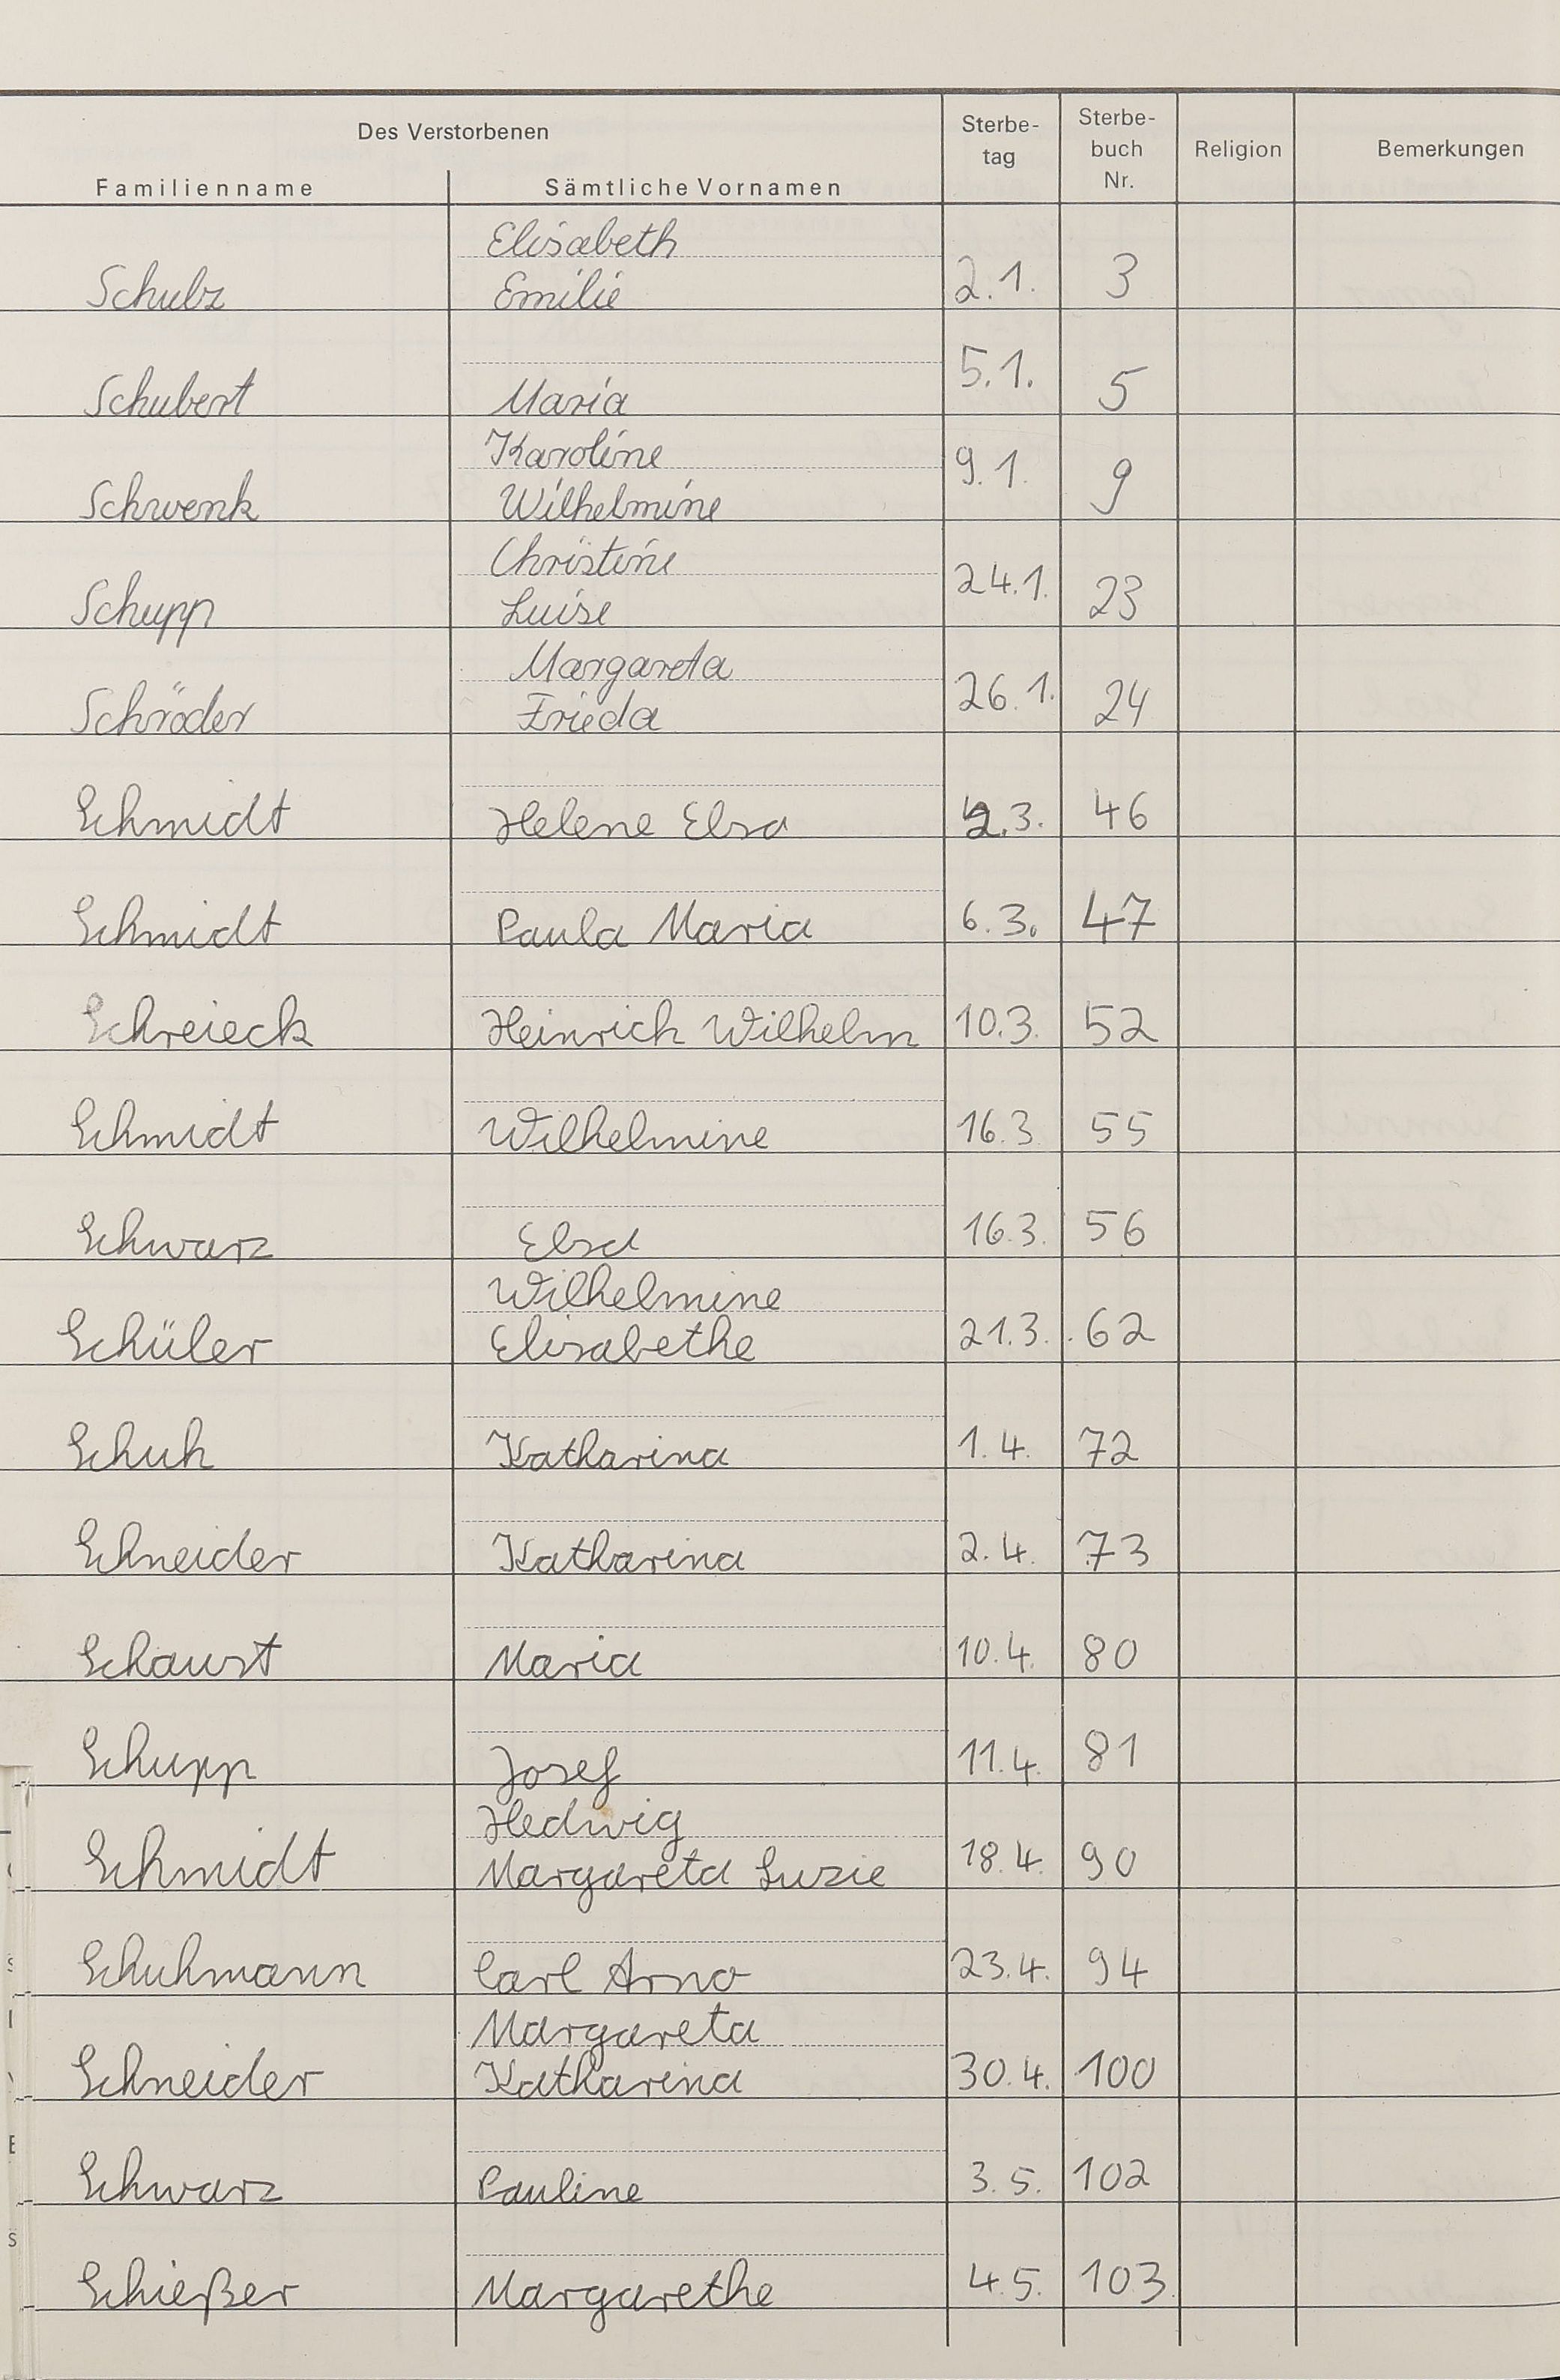 Des Verstorbenen
Familienname Sämtliche Vornamen Sterbe-tag Sterbe-buch Nr. Religion Bemerkungen
Elisabeth
Schulz Emilie 2.1. 3
Schubert Maria 5.1. 5
Karoline
Schwenk Wilhelmine 9.1. 9
Christine
Schupp Luise 24.1. 23
Margareta
Schröder Frieda 26.1. 24
Schmidt Helene Elsa 2.3. 46
Schmidt Paula Maria 6.3. 47
Schreieck Heinrich Wilhelm 10.3. 52
Schmidt Wilhelmine 16.3 55
Schwarz Elsa 16.3. 56
Wilhelmine
Schüler Elisabethe 21.3. 62
Schuh Katharina 1.4. 72
Schneider Katharina 2.4. 73
Schaust Maria 10.4. 80
Schupp Josef 11.4. 81
Hedwig
Schmidt Margareta Luzie 18.4. 90
Schuhmann Carl Arno 23.4. 94
Margareta
Schneider Katharina 30.4. 100
Schwarz Pauline 3.5. 102
Schießer Margarethe 4.5. 103